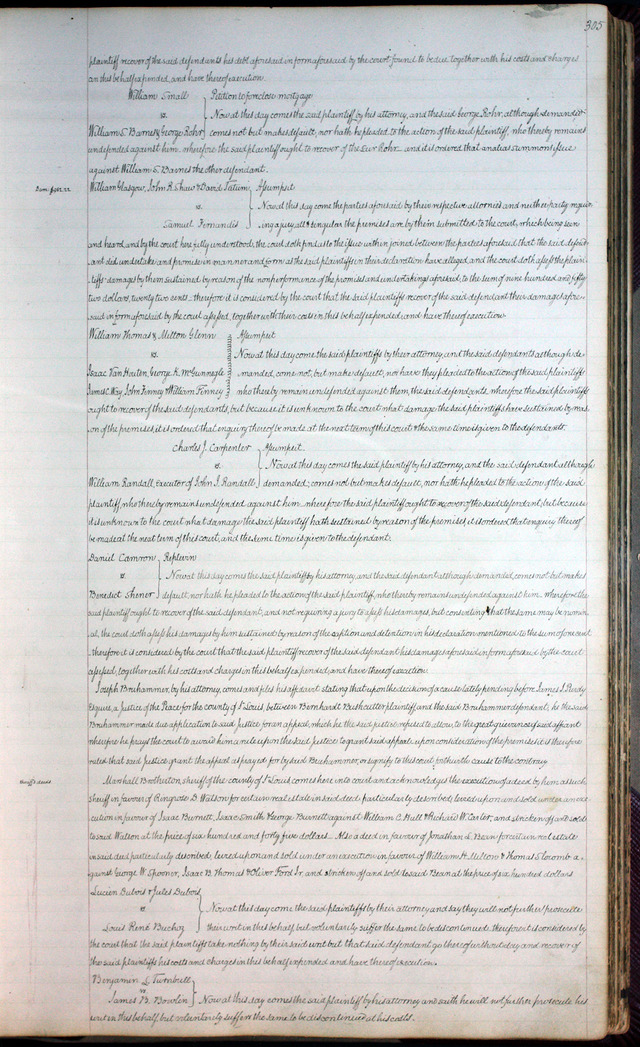 305
plaintiff recover of the said defendants his debt aforesaid in form aforesaid by the court found to be due, together with his costs and charges
in this behalf expended, and have thereof execution.
William Small } Petition to foreclose mortgage
vs. Now at this day comes the said plaintiff by his attorney, and the said George Rohr, although demanded
William S. Barnes & George Rohr comes not but makes default, nor hath he pleaded to the action of the said plaintiff, who thereby remains
undefended against him wherefore the said plaintiff ought to recover of the sd Rohr and it is ordered that an alias summons issue
against William S. Barnes the other defendant.
William Glasgow, John R. Shaw & David Tatum } Assumpsit
vs. Now at this day come the parties aforesaid by their respective attornies and neither party requir
Samuel Fernandis ing a jury all & singular the premises are by them submitted to the court, which being seen
and heard, and by the court here fully understood, the court doth find as to the issue within joined between the parties aforesaid that the said defend
ant did undertake and promise in manner and form as the said plaintiffs in their declaration have alleged, and the court doth assess the plain
tiffs damages by them sustained by reason of the nonperformance of the promises and undertakings aforesaid, to the sum of nine hundred and fifty
two dollars, twenty two cents therefore it is considered by the court that the said plaintiffs recover of the said defendant their damages afore
said in form aforesaid by the court assessed, together with their costs in this behalf expended, and have thereof execution.
William Thomas & Milton Glenn } Assumpsit
vs. Now at this day come the said plaintiffs by their attorney, and the said defendants although de
Isaac Van Houten, George K. McGunnegle manded, come not, but make default, nor have they pleaded to the action of the said plaintiffs
James C. Way, John Finney & William Finney who thereby remain undefended against them, the said defendants, wherefore the said plaintiffs
ought to recover of the said defendants, but because it is unknown to the court what damage the said plaintiffs have sustained by reas
on of the premises, it is ordered that enquiry thereof be made at the next term of this court & the same time is given to the defendants.
Charles J. Carpenter } Assumpsit
vs. Now at this day comes the said plaintiff by his attorney, and the said defendant although
William Randall, Executor of John J. Randall demanded, comes not but makes default, nor hath he pleaded to the action of the said
plaintiff, who thereby remains undefended against him wherefore the said plaintiff ought to recover of the said defendant, but because
it is unknown to the court what damage the said plaintiff hath sustained by reason of the premises, it is ordered that enquiry thereof
be made at the next term of this court, and the same time is given to the defendant.
Daniel Camron } Replevin
vs. Now at this day comes the said plaintiff by his attorney, and the said defendant although demanded, comes not but makes
Benedict Shener default, nor hath he pleaded to the action of the said plaintiff, who thereby remains undefended against him wherefore the
said plaintiff ought to recover of the said defendant, and not requiring a jury to assess his damages, but consenting that the same may be nomin
al, the court doth assess his damages by him sustained by reason of the caption and detention in his declaration mentioned to the sum of one cent
therefore it is considered by the court that the said plaintiff recover of the said defendant his damages aforesaid in form aforesaid by the court
assessed, together with his costs and charges in this behalf expended, and have thereof execution.
Joseph Bruhammer, by his attorney, comes and files his affidavit stating that upon the decision of a cause lately pending before James J. Purdy
Esquire, a Justice of the Peace for the county of St Louis, between Bernhardt Bushcutter plaintiff and the said Bruhammer defendant; he the said
Bruhammer made due application to said Justice for an appeal, which he the said justice refused to allow, to the great grievance of said affiant
wherefore he prays the court to award him a rule upon the said Justice to grant said appeal: upon consideration of the premises it is therefore
ruled that said justice grant the appeal as prayed for by said Bruhammer, or signify to this court forthwith cause to the contrary
Sheriff's deeds
Marshall Brotherton, sheriff of the county of St Louis comes here into court and acknowledges the execution of a deed by him as such
sheriff in favour of Ringrose D. Watson for certain real estate in said deed particularly described, levied upon and sold under an exe
cution in favour of Isaac Burnett, Isaac Smith & George Burnett against William C. Hull & Richard W. Carter, and stricken off and sold
to said Watson at the price of six hundred and forty five dollars Also a deed in favour of Jonathan L. Bean for certain real estate
in said deed particularly described, levied upon and sold under an execution in favour of William H. Milnor & Thomas Slocomb a
gainst George W. Spooner, Isaac B. Thomas & Oliver Ford Jr. and stricken off and sold to said Bean at the price of six hundred dollars
Lucien Dubois & Jules Dubois
vs. Now at this day come the said plaintiffs by their attorney and say they will not further prosecute
Louis René Buchoz their writ in this behalf, but voluntarily suffer the same to be discontinued therefore it is considered by
the court that the said plaintiffs take nothing by their said writ but that said defendant go thereof without day and recover of
the said plaintiffs his costs and charges in this behalf expended and have thereof execution.
Benjamin L. Turnbull
vs.
James B. Bowlin Now at this day comes the said plaintiff by his attorney and saith he will not further prosecute his
writ in this behalf, but voluntarily suffers the same to be discontinued at his costs.